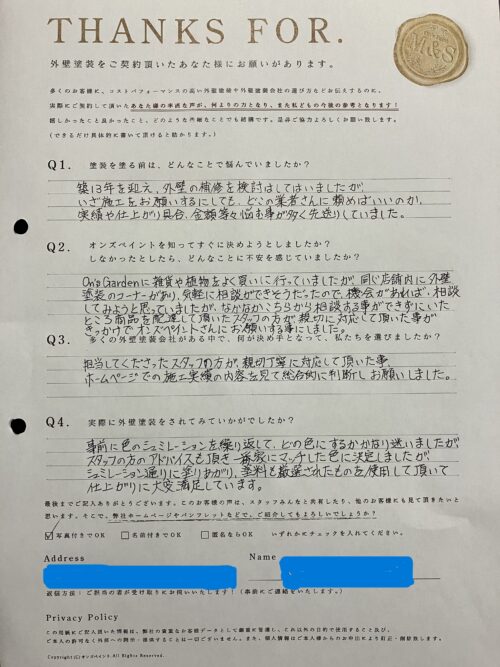 THANKS FOR.
M&S
外壁塗装をご契約頂いたあなた様にお願いがあります。
多くのお客様に、コストパフォーマンスの高い外壁塗装や外壁塗装会社の選び方などお伝えするのに、
実際にご契約して頂いたあなた様の率直な声が、何よりの力となり、また私どもの今後の参考となります！
嬉しかったこと良かったこと、どのような些細なことでも結構です。是非ご協力よろしくお願い致します。
(できるだけ具体的に書いて頂けると助かります。)
Q1. 塗装を塗る前は、どんなことで悩んでいましたか？
築13年を迎え、外壁の補修を検討はしてはいましたが、
いざ施工をお願いするにしても、どこの業者さんに頼めばいいのか、
実績や仕上がり具合、金額等々悩む事が多く先送りしていました。
Q2. オンズペイントを知ってすぐに決めようとしましたか？
しなかったとしたら、どんなことに不安を感じていましたか？
On's Gardenに雑貨や植物をよく買いに行っていましたが、同じ店舗内に外壁
塗装のコーナーがあり、気軽に相談ができそうだったので、機会があれば、相談
してみようと思っていましたが、なかなかこちらから相談する事ができずにいた
ところ商品を配達して頂いたスタッフの方が親切に対応して頂いた事が
きっかけでオンズペイントさんにお願いする事にしました。
Q3. 多くの外壁塗装会社がある中で、何が決め手となって、私たちを選びましたか？
担当してくださったスタッフの方が、親切丁寧に対応して頂いた事、
ホームページでの施工実績の内容を見て総合的に判断しお願いしました。
Q4. 実際に外壁塗装をされてみていかがでしたか？
事前に色のシュミレーションを繰り返して、どの色にするかかなり迷いましたが
スタッフの方のアドバイスも頂き一番家にマッチした色に決定しましたが、
シュミレーション通りに塗りあがり、塗料も厳選されたものを使用して頂いて
仕上がりに大変満足しています。
最後までご記入ありがとうございます。このお客様の声は、スタッフみんなと共有したり、他のお客様にも見て頂きたいと
思います。そこで、弊社ホームページやパンフレットなどで、ご紹介してもよろしいでしょうか？
写真付きでOK 名前付きでOK 匿名ならOK いずれかにチェックを入れてください。
Address Name
返信方法：ご担当の者が受け取りにお伺いいたします！（事前にご連絡をいたします。）
Privacy Policy
この用紙にご記入頂いた情報は、弊社の貴重なお客様データとして厳重に管理し、これ以外の目的で使用すること及び、
ご本人の許可なく外部への開示・提供することは一切ございません。また、個人情報はご本人様からのお申出により訂正・削除致します。
Copyright (C) オンズペイント.All Rights Reserved.